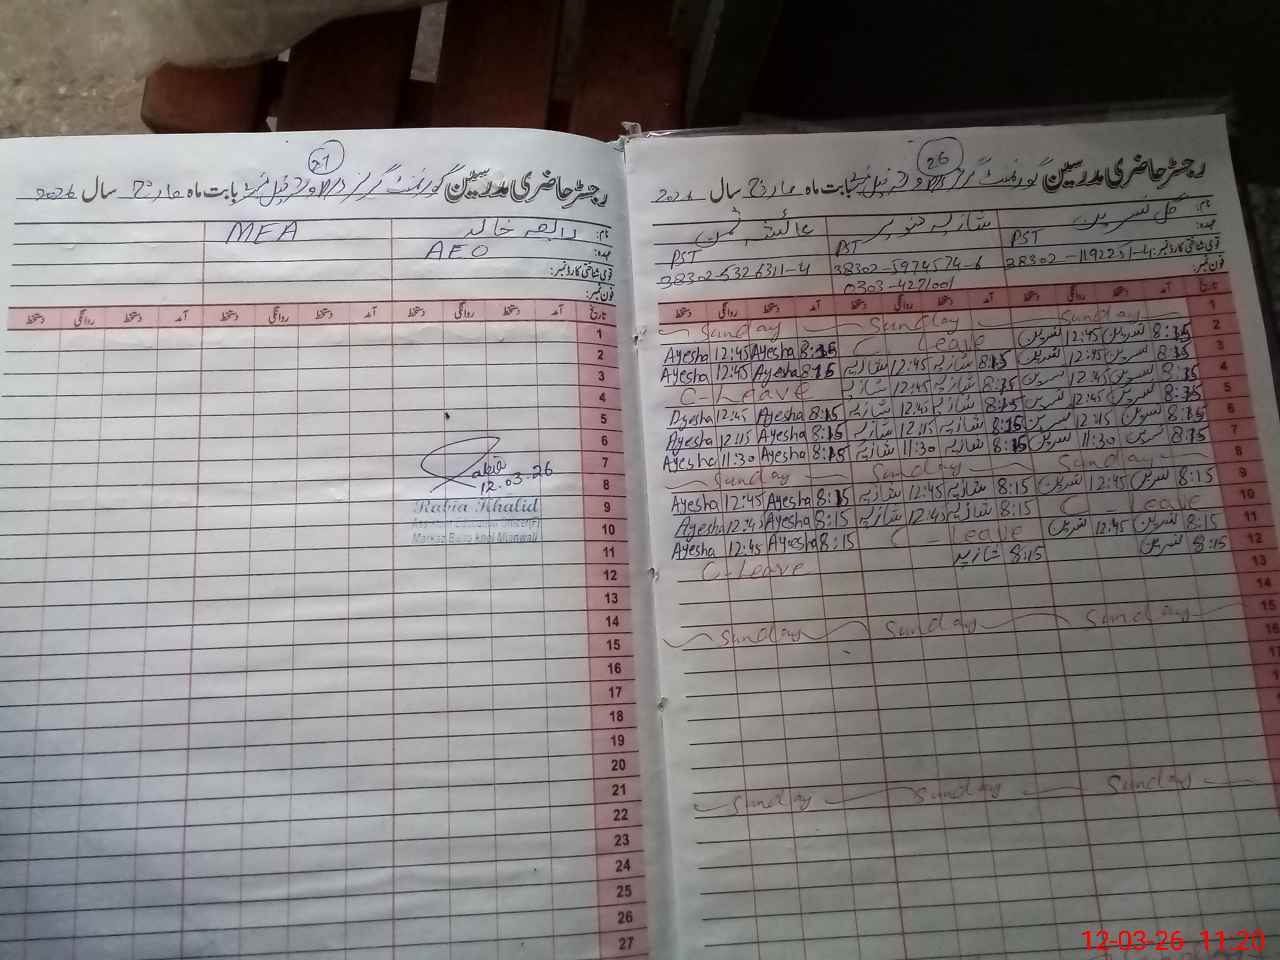 26
رجسٹر حاضری مدرسین گورنمنٹ گرلز بابت ماہ مارچ سال 2026
نام: گل نسرین شازیہ تنویر عائشہ
عہدہ: PST PST PST
قومی شناختی کارڈ نمبر: 38302-1192251-4 38302-5974574-6 38302-5326311-4
فون نمبر: 0303-4271001
تاریخ آمد دستخط روانگی دستخط آمد دستخط روانگی دستخط آمد دستخط روانگی دستخط
1 Sunday Sunday Sunday
2 8:15 نسرین 12:45 نسرین C Leave 8:15 Ayesha 12:45 Ayesha
3 8:15 نسرین 12:45 نسرین 8:15 شازیہ 12:45 شازیہ 8:15 Ayesha 12:45 Ayesha
4 8:15 نسرین 12:45 نسرین 8:15 شازیہ 12:45 شازیہ C-Leave
5 8:15 نسرین 12:45 نسرین 8:15 شازیہ 12:45 شازیہ 8:15 Ayesha 12:45 Ayesha
6 8:15 نسرین 12:15 نسرین 8:15 شازیہ 12:15 شازیہ 8:15 Ayesha 12:15 Ayesha
7 8:15 نسرین 11:30 نسرین 8:15 شازیہ 11:30 شازیہ 8:15 Ayesha 11:30 Ayesha
8 Sunday Sunday Sunday
9 8:15 نسرین 12:45 نسرین 8:15 شازیہ 12:45 شازیہ 8:15 Ayesha 12:45 Ayesha
10 C-Leave 8:15 شازیہ 12:45 شازیہ 8:15 Ayesha 12:45 Ayesha
11 8:15 نسرین 12:45 نسرین C-Leave 8:15 Ayesha 12:45 Ayesha
12 8:15 نسرین 8:15 شازیہ C-Leave
13
15 Sunday Sunday Sunday
16
Sunday Sunday Sunday
27
رجسٹر حاضری مدرسین گورنمنٹ گرلز بابت ماہ مارچ سال 2026
نام: رابعہ خالد MEA
عہدہ: AEO
قومی شناختی کارڈ نمبر:
فون نمبر:
تاریخ آمد دستخط روانگی دستخط آمد دستخط روانگی دستخط آمد دستخط روانگی دستخط
1
2
3
4
5
6
7 Rabia
8 12.03.26
9 Rabia Khalid
10 Assistant Education Officer(F)
Markaz Mianwali
11
12
13
14
15
16
17
18
19
20
21
22
23
24
25
26
27
12-03-26 11:20